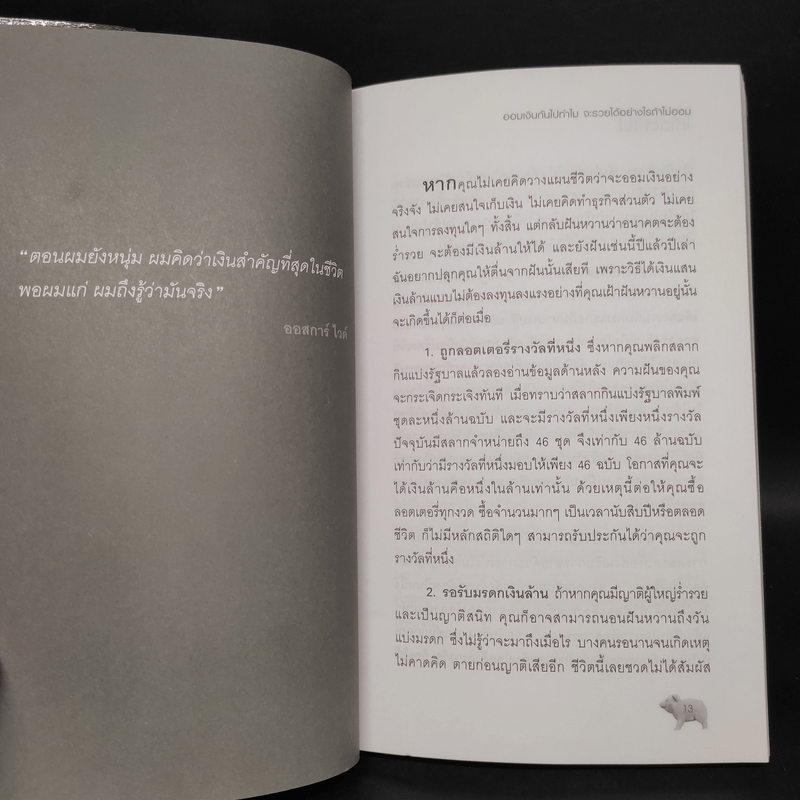 “ตอนผมยังหนุ่ม ผมคิดว่าเงินสำคัญที่สุดในชีวิต
พอผมแก่ ผมถึงรู้ว่ามันจริง”
ออสการ์ ไวด์
ออมเงินกันไปทำไม จะรวยได้อย่างไรถ้าไม่ออม
หากคุณไม่เคยคิดวางแผนชีวิตว่าจะออมเงินอย่าง
จริงจัง ไม่เคยสนใจเก็บเงิน ไม่เคยคิดทำธุรกิจส่วนตัว ไม่เคย
สนใจการลงทุนใดๆ ทั้งสิ้น แต่กลับฝันหวานว่าอนาคตจะต้อง
ร่ำรวย จะต้องมีเงินล้านให้ได้ และยังฝันเช่นนี้ปีแล้วปีเล่า
ฉันอยากปลุกคุณให้ตื่นจากฝันนั้นเสียที เพราะวิธีได้เงินแสน
เงินล้านแบบไม่ต้องลงทุนลงแรงอย่างที่คุณเฝ้าฝันหวานอยู่นั้น
จะเกิดขึ้นได้ก็ต่อเมื่อ
1. ถูกลอตเตอรี่รางวัลที่หนึ่ง ซึ่งหากคุณพลิกสลาก
กินแบ่งรัฐบาลแล้วลองอ่านข้อมูลด้านหลัง ความฝันของคุณ
จะกระเจิดกระเจิงทันที เมื่อทราบว่าสลากกินแบ่งรัฐบาลพิมพ์
ชุดละหนึ่งล้านฉบับ และจะมีรางวัลที่หนึ่งเพียงหนึ่งรางวัล
ปัจจุบันมีสลากจำหน่ายถึง 46 ชุด จึงเท่ากับ 46 ล้านฉบับ
เท่ากับว่ามีรางวัลที่หนึ่งมอบให้เพียง 46 ฉบับ โอกาสที่คุณจะ
ได้เงินล้านคือหนึ่งในล้านเท่านั้น ด้วยเหตุนี้ต่อให้คุณซื้อ
ลอตเตอรี่ทุกงวด ซื้อจำนวนมากๆ เป็นเวลานับสิบปีหรือตลอด
ชีวิต ก็ไม่มีหลักสถิติใดๆ สามารถรับประกันได้ว่าคุณจะถูก
รางวัลที่หนึ่ง
2. รอรับมรดกเงินล้าน ถ้าหากคุณมีญาติผู้ใหญ่ร่ำรวย
และเป็นญาติสนิท คุณก็อาจสามารถนอนฝันหวานถึงวัน
แบ่งมรดก ซึ่งไม่รู้ว่าจะมาถึงเมื่อไร บางคนรอนานจนเกิดเหตุ
ไม่คาดคิด ตายก่อนญาติเสียอีก ชีวิตนี้เลยชวดไม่ได้สัมผัส
13